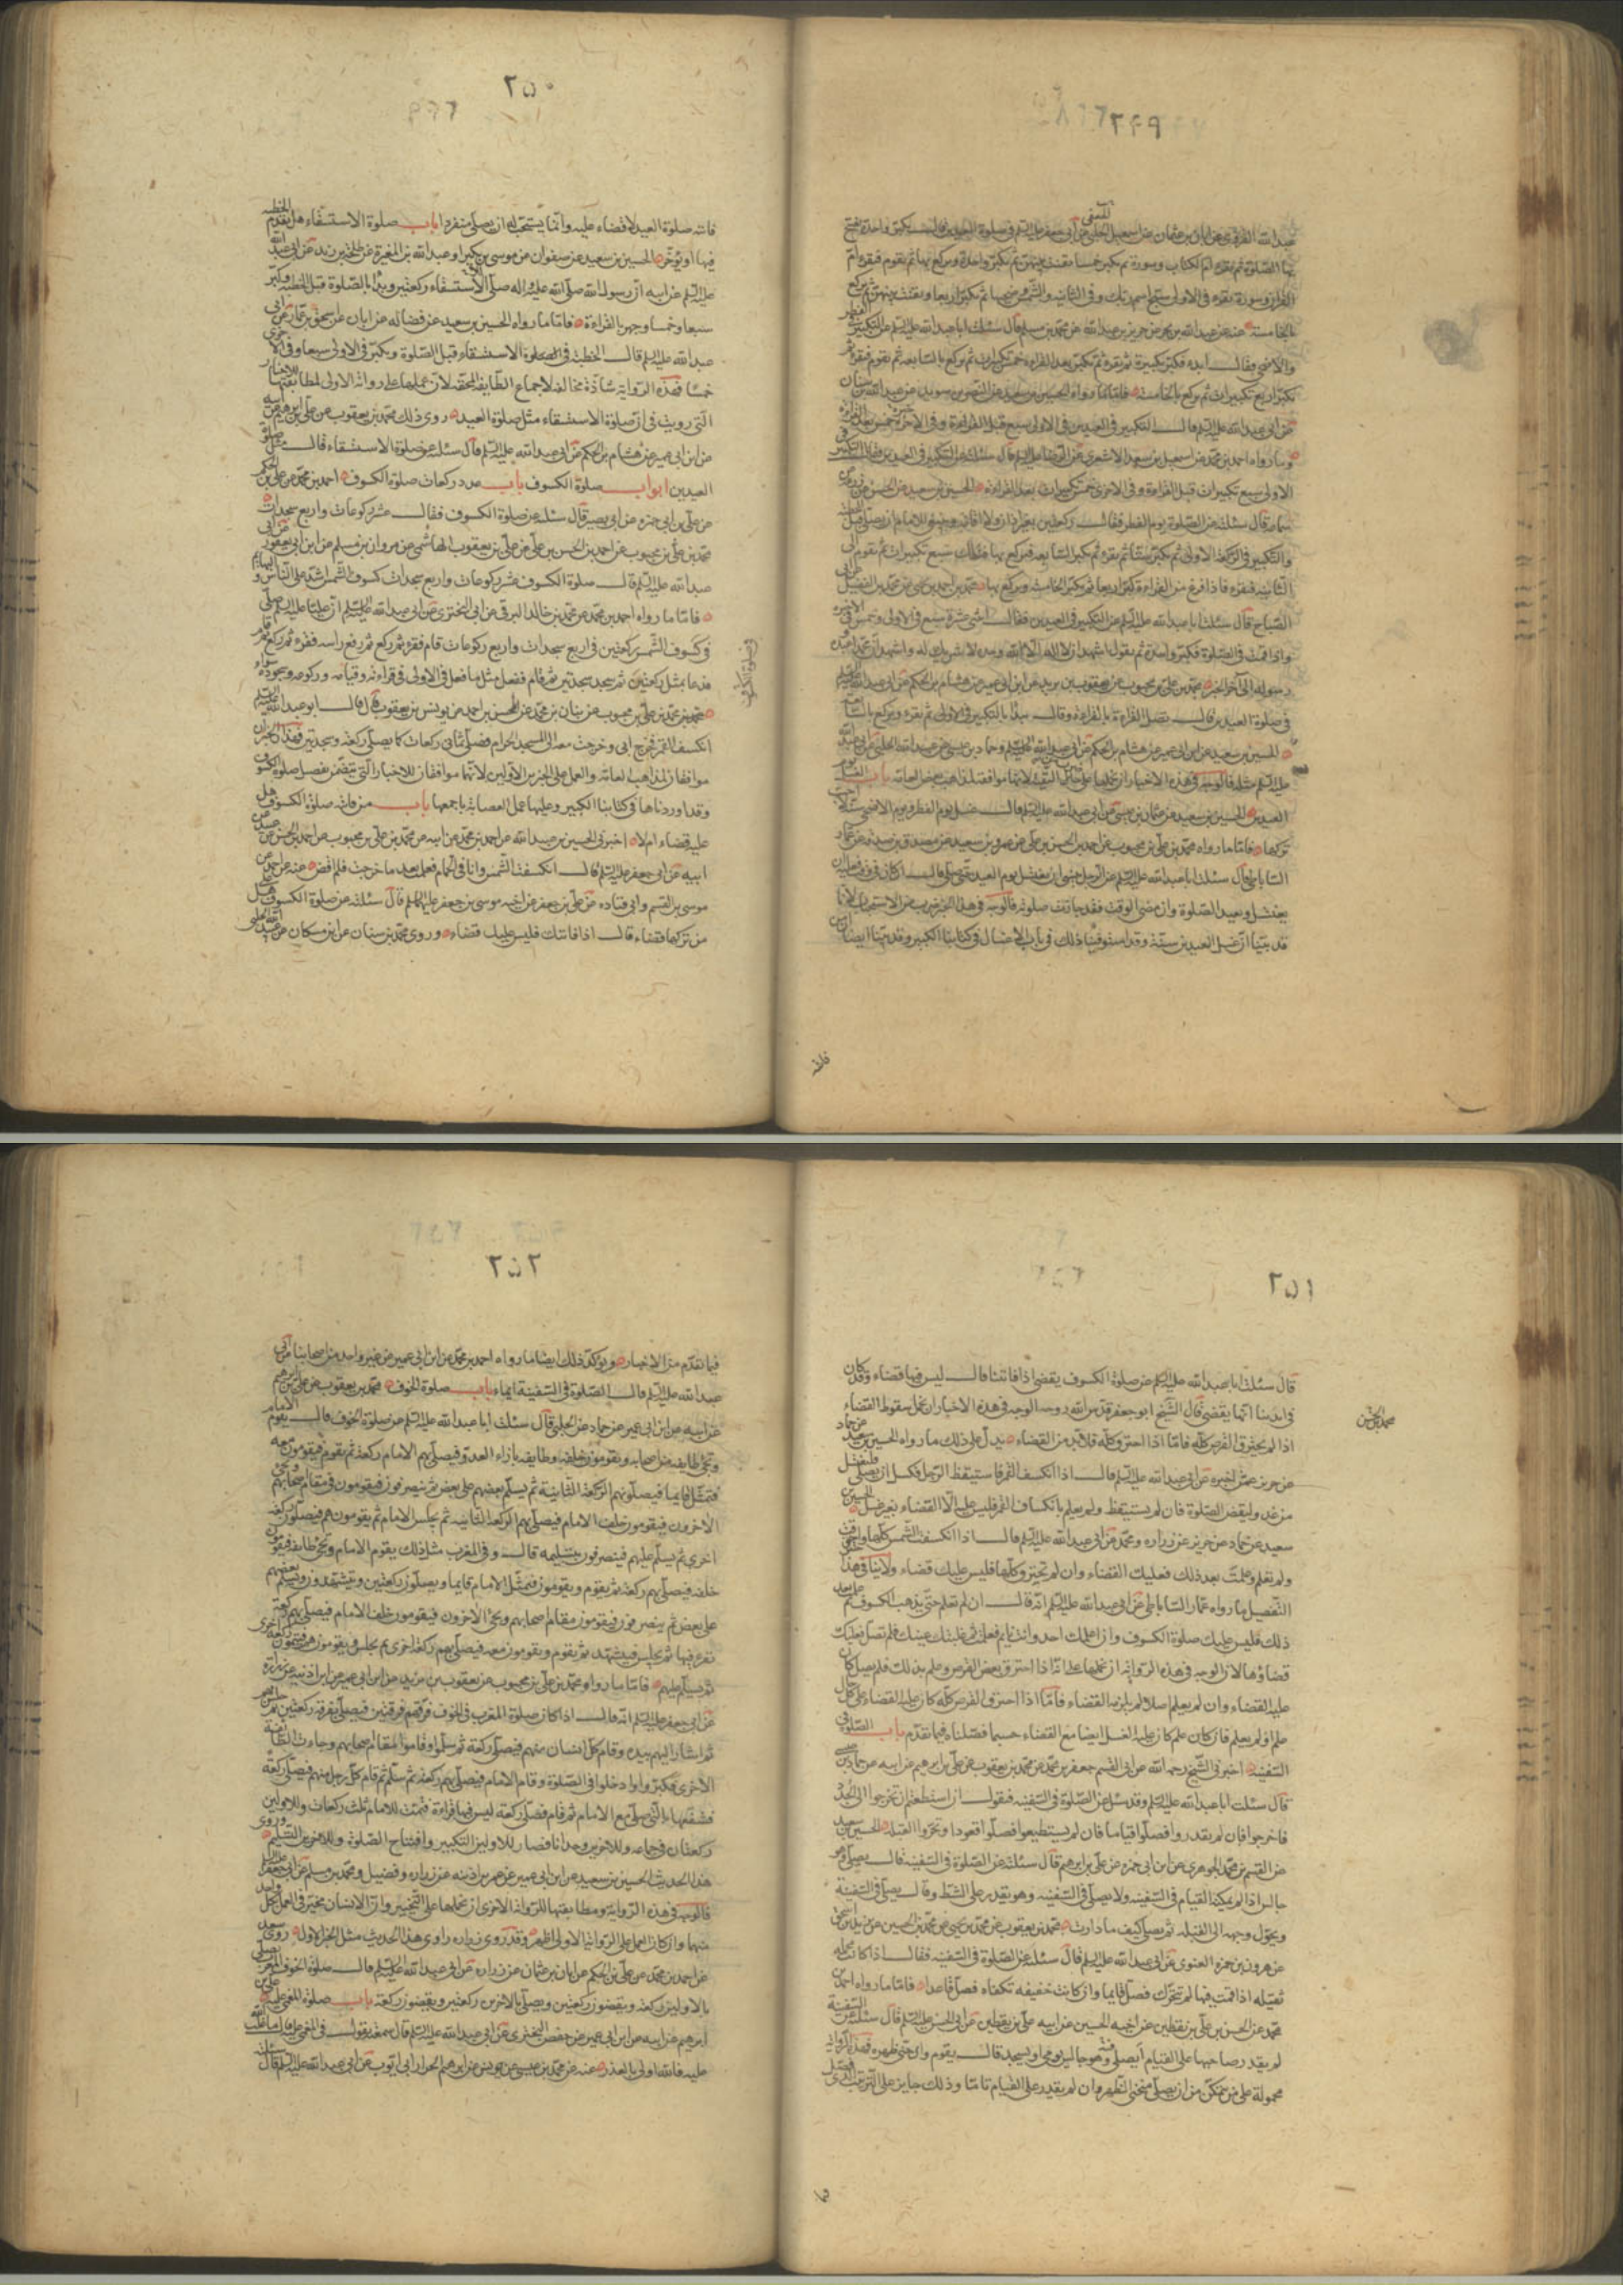 ٢٤٩
عبد الله القروى عن ابان بن عثمان عن اسمعيل الجعفى عن ابى جعفر عليه السلم فى صلوة العيدين قال يكبر واحدة يفتتح
بها الصلوة ثم يقرء ام الكتاب وسورة ثم يكبر خمسا يقنت بينهن ثم يكبر واحدة ويركع بها ثم يقوم فيقرء ام
القران وسورة يقرء فى الاولى سبح اسم ربك وفى الثانية والشمس وضحيها ثم يكبر اربعا ويقنت بينهن ثم يركع
بالخامسة عنه عن عبد الله بن بحر عن حريز بن عبد الله عن محمد بن مسلم قال سئلت ابا عبد الله عليه السلم عن التكبير فى الفطر
والاضحى فقال ابدء فكبر تكبيرة ثم تقرء ثم تكبر بعد القراءة خمس تكبيرات ثم تركع بالسابعة ثم تقوم فتقرء ثم
تكبر اربع تكبيرات ثم تركع بالخامسة فاما ما رواه الحسين بن سعيد عن النضر بن سويد عن عبد الله بن سنان
عن ابى عبد الله عليه السلم قال التكبير فى العيدين فى الاولى سبع قبل القراءة وفى الاخرة خمس بعد القراءة
وما رواه احمد بن محمد عن اسمعيل بن سعد الاشعرى عن الرضا عليه السلم قال سئلته عن التكبير فى العيدين قال التكبير فى
الاولى سبع تكبيرات قبل القراءة وفى الاخرى خمس تكبيرات بعد القراءة الحسين بن سعيد عن الحسن عن زرعة عن
سماعة قال سئلته عن الصلوة يوم الفطر فقال ركعتين بغير اذان ولا اقامة وينبغى للامام ان يصلى قبل الخطبة
والتكبير فى الركعة الاولى ثم يكبر ستا ثم يقرء ثم يكبر السابعة فيركع بها فتلك سبع تكبيرات ثم يقوم فى
الثانية فيقرء فاذا فرغ من القراءة كبر اربعا ثم يكبر الخامسة ويركع بها محمد بن احمد بن يحيى عن محمد بن الفضيل عن ابى
الصباح قال سئلت ابا عبد الله عليه السلم عن التكبير فى العيدين فقال اثنتى عشرة سبع فى الاولى وخمس فى الاخيرة
واذا قمت فى الصلوة فكبر واحدة ثم تقول اشهد ان لا اله الا الله وحده لا شريك له واشهد ان محمدا عبده
ورسوله الى آخر الخبر محمد بن على بن محبوب عن يعقوب بن يزيد عن ابن ابى عمير عن هشام بن الحكم عن ابى عبد الله عليه السلم
فى صلوة العيدين قال يصل القراءة بالقراءة وقال يبدأ بالتكبير فى الاولى ثم يقرء ويركع بالسابعة
الحسين بن سعيد عن ابن ابى عمير عن هشام بن الحكم عن ابى عبد الله عليه السلم وحماد بن عيسى عن عبيد الله الحلبى عن ابى عبد الله
عليه السلم مثله فالوجه فى هذه الاخبار ان نحملها على التقية لانها موافقة لمذاهب بعض العامة باب الغسل يوم
العيدين الحسين بن سعيد عن عثمان بن عيسى عن ابى عبد الله عليه السلم قال غسل يوم الفطر ويوم الاضحى سنة لا احب
تركها فاما ما رواه محمد بن على بن محبوب عن احمد بن الحسن بن على عن عمرو بن سعيد عن مصدق بن صدقة عن عمار
الساباطى قال سئلت ابا عبد الله عليه السلم عن الرجل ينسى ان يغتسل يوم العيد حتى صلى قال ان كان فى وقت فعليه ان
يغتسل ويعيد الصلوة وان مضى الوقت فقد جازت صلوته فالوجه فى هذا الخبر ضرب من الاستحباب لانا
قد بينا ان غسل العيدين سنة وقد استوفينا ذلك فى باب الاغسال فى كتابنا الكبير وقد بينا ايضا ان من
فاتته
٢٥٠
فاتته صلوة العيد لا قضاء عليه وانما يستحب له ان يصلى منفردا باب صلوة الاستسقاء هل يقدم الخطبة
فيها او يؤخر الحسين بن سعيد عن صفوان عن موسى بن بكر او عبد الله بن المغيرة عن طلحة بن زيد عن ابى عبد الله
عليه السلم عن ابيه ان رسول الله صلى الله عليه واله صلى الاستسقاء ركعتين وبدأ بالصلوة قبل الخطبة وكبر
سبعا وخمسا وجهر بالقراءة فاما ما رواه الحسين بن سعيد عن فضالة عن ابان عن اسحق بن عمار عن ابى
عبد الله عليه السلم قال الخطبة فى الصلوة الاستسقاء قبل الصلوة ويكبر فى الاولى سبعا وفى الاخرى
خمسا فهذه الرواية شاذة مخالفة لاجماع الطايفة المحقة لان عملها على رواية الاولى لمطابقتها للاخبار
التى رويت فى ان صلوة الاستسقاء مثل صلوة العيد روى ذلك محمد بن يعقوب عن على بن ابرهيم عن ابيه
عن ابن ابى عمير عن هشام بن الحكم عن ابى عبد الله عليه السلم قال سئلته عن صلوة الاستسقاء قال مثل صلوة
العيدين ابواب صلوة الكسوف باب عدد ركعات صلوة الكسوف احمد بن محمد عن على بن الحكم
عن على بن ابى حمزه عن ابى بصير قال سئلته عن صلوة الكسوف فقال عشر ركوعات واربع سجدات
محمد بن على بن محبوب عن احمد بن الحسن بن على عن على بن يعقوب الهاشمى عن مروان بن مسلم عن ابن ابى يعفور عن ابى
عبد الله عليه السلم قال صلوة الكسوف عشر ركوعات واربع سجدات كسوف الشمس اشد على الناس والبهايم
فاما ما رواه احمد بن محمد عن محمد بن خالد البرقى عن ابى البخترى عن ابى عبد الله عليه السلم ان عليا عليه السلم صلى
فى كسوف الشمس ركعتين فى اربع سجدات واربع ركوعات قام فقرء ثم ركع ثم رفع راسه فقرء ثم ركع ثم قام
فدعا بمثل ركعتين ثم سجد سجدتين ثم قام ففعل مثل ما فعل فى الاولى فى قراءته وقيامه وركوعه وسجوده سواء
محمد بن على بن محبوب عن بنان بن محمد عن المحسن بن احمد عن يونس بن يعقوب قال قال ابو عبد الله عليه السلم
انكسف القمر فخرج ابى وخرجت معه الى المسجد الحرام فصلى ثمانى ركعات كما يصلى ركعة وسجدتين فهذان الخبران
موافقان لمذاهب العامة والعمل على الخبرين الاولين لانهما موافقان للاخبار التى يتضمن تفصيل صلوة الكسوف
وقد اوردناها فى كتابنا الكبير وعليها عمل العصابة باجمعها باب من فاته صلوة الكسوف هل
عليه قضاء ام لا اخبرنى الحسين بن عبيد الله عن احمد بن محمد عن ابيه عن محمد بن على بن محبوب عن احمد بن الحسن عن
ابيه عن ابى جعفر عليه السلم قال انكسفت الشمس وانا فى الحمام فعلمت بعد ما خرجت فلم اقض عنه عن احمد عن
موسى بن القسم وابى قتاده عن على بن جعفر عن اخيه موسى بن جعفر عليهما السلم قال سئلته عن صلوة الكسوف هل على
من تركها قضاء قال اذا فاتتك فليس عليك قضاء وروى محمد بن سنان عن ابن مسكان عن عبيد الله الحلبى
فى صلوة الكسوف
٢٥١
قال سئلت ابا عبد الله عليه السلم عن صلوة الكسوف يقضى اذا فاتتنا قال ليس فيها قضاء وقد كان
فى ايدينا انها يقضى قال الشيخ ابو جعفر قدس الله روحه الوجه فى هذه الاخبار ان نحمل سقوط القضاء
اذا لم يحترق القرص كله فاما اذا احترق كله فلا بد من القضاء يدل على ذلك ما رواه الحسين بن سعيد عن حماد
عن حريز عمن اخبره عن ابى عبد الله عليه السلم قال اذا انكسف القمر فاستيقظ الرجل فكسل ان يصلى فليغتسل
من غد وليقض الصلوة فان لم يستيقظ ولم يعلم بانكساف القمر فليس عليه الا القضاء بغير غسل الحسين بن
سعيد عن حماد عن حريز عن زرارة ومحمد عن ابى عبد الله عليه السلم قال اذا انكسفت الشمس كلها واحترقت
ولم تعلم وعلمت بعد ذلك فعليك القضاء وان لم تحترق كلها فليس عليك قضاء ولا ينافى هذا
التفصيل ما رواه عمار الساباطى عن ابى عبد الله عليه السلم انه قال ان لم تعلم حتى يذهب الكسوف ثم علمت بعد
ذلك فليس عليك صلوة الكسوف وان اعلمك احد وانت نايم فعلمت ثم غلبتك عينك فلم تصل فعليك
قضاؤها لان الوجه فى هذه الرواية ان نحملها على انه اذا احترق بعض القرص وعلم بذلك فلم يصل كان
عليه القضاء وان لم يعلم اصلا لم يلزمه القضاء فاما اذا احترق القرص كله كان عليه القضاء على كل حال
علم او لم يعلم فان كان علم كان عليه الغسل ايضا مع القضاء حسبما فصلناه فيما تقدم باب الصلوة فى
السفينة اخبرنى الشيخ رحمه الله عن ابى القسم جعفر بن محمد عن محمد بن يعقوب عن على بن ابرهيم عن ابيه عن حماد بن عيسى
قال سئلت ابا عبد الله عليه السلم وقد سئل عن الصلوة فى السفينة فيقول ان استطعتم ان تخرجوا الى الجدد
فاخرجوا فان لم تقدروا فصلوا قياما فان لم تستطيعوا فصلوا قعودا وتحروا القبلة الحسين بن سعيد
عن القسم بن محمد الجوهرى عن ابن ابى حمزه عن على بن ابرهيم قال سئلته عن الصلوة فى السفينة قال يصلى وهو
جالس اذا لم يمكنه القيام فى السفينة ولا يصلى فى السفينة وهو يقدر على الشط وقال يصلى فى السفينة
ويحول وجهه الى القبلة ثم يصلى كيف ما دارت محمد بن يعقوب عن محمد بن يحيى عن محمد بن الحسين عن يزيد بن اسحق
عن هرون بن حمزه الغنوى عن ابى عبد الله عليه السلم قال سئلته عن الصلوة فى السفينة فقال اذا كانت محملة
ثقيلة اذا قمت فيها لم تتحرك فصل قايما وان كانت خفيفة تكفاء فصل قاعدا فاما ما رواه احمد بن
محمد عن الحسن بن على بن يقطين عن اخيه الحسين عن ابيه على بن يقطين عن ابى الحسن عليه السلم قال سئلته عن السفينة
لم يقدر صاحبها على القيام ايصلى وهو جالس يومى او يسجد قال يقوم وان حنى ظهره فهذه الرواية
محمولة على من تمكن من ان يصلى منحنى الظهر وان لم يقدر على القيام تاما وذلك جايز على الترتيب الذى فصل
فيما
٢٥٢
فيما تقدم من الاخبار ويؤكد ذلك ايضا ما رواه احمد بن محمد عن ابن ابى عمير عن غير واحد من اصحابنا عن ابى
عبد الله عليه السلم قال الصلوة فى السفينة ايماء باب صلوة الخوف محمد بن يعقوب عن على بن ابرهيم
عن ابيه عن ابن ابى عمير عن حماد عن الحلبى قال سئلت ابا عبد الله عليه السلم عن صلوة الخوف قال يقوم الامام
وتجئ طايفة من اصحابه ويقومون خلفه وطايفة بازاء العدو فيصلى بهم الامام ركعة ثم يقوم فيقومون معه
فتمثل قايما فيصلون هم الركعة الثانية ثم يسلم بعضهم على بعض ثم ينصرفون فيقومون فى مقام اصحابهم ويجئ
الاخرون فيقومون خلف الامام فيصلى بهم الركعة الثانية ثم يجلس الامام ثم يقومون هم فيصلون ركعة
اخرى ثم يسلم عليهم فينصرفون بتسليمه قال وفى المغرب مثل ذلك يقوم الامام وتجئ طايفة فيقومون
خلفه فيصلى بهم ركعة ثم يقوم ويقومون فتمثل الامام قايما ويصلون ركعتين ويتشهدون ويسلم بعضهم
على بعض ثم ينصرفون فيقومون مقام اصحابهم ويجئ الاخرون فيقومون خلف الامام فيصلى بهم ركعة
يقرء فيها ثم يجلس فيتشهد ثم يقوم ويقومون معه فيصلى بهم ركعة اخرى ثم يجلس ويقومون هم فيتمون ركعة اخرى
ثم يسلم عليهم فاما ما رواه محمد بن على بن محبوب عن يعقوب بن يزيد عن ابن ابى عمير عن ابن اذينة عن زرارة
عن ابى جعفر عليه السلم انه قال اذا كان صلوة المغرب فى الخوف فرقهم فرقتين فيصلى بفرقة ركعتين ثم جلس بهم
ثم اشار اليهم بيده وقام كل انسان منهم فيصلى ركعة ثم سلموا وقاموا مقام اصحابهم وجاءت الطايفة
الاخرى فكبروا ودخلوا فى الصلوة وقام الامام فيصلى بهم ركعة ثم سلم ثم قام كل رجل منهم فيصلى ركعة
فشفعها بالتى صلى مع الامام ثم قام فصلى ركعة ليس فيها قراءة فتمت للامام ثلث ركعات وللاولين
ركعتان فى جماعة وللاخرين وحدانا فصار للاولين التكبير وافتتاح الصلوة وللاخرين التسليم وروى
هذا الحديث الحسين بن سعيد عن ابن ابى عمير عن عمر بن اذينه عن زراره وفضيل ومحمد بن مسلم عن ابى جعفر عليه السلم
فالوجه فى هذه الرواية ومطابقتها للرواية الاخرى ان نحملها على التخيير وان الانسان مخير فى العمل بكل واحد
منهما وان كان العمل على الرواية الاولى اظهر وقد روى زراره راوى هذا الحديث مثل الخبر الاول روى سعد
عن احمد بن محمد عن على بن الحكم عن ابان بن عثمان عن زراره عن ابى عبد الله عليه السلم قال صلوة الخوف المغرب يصلى
بالاولين ركعة ويقضون ركعتين ويصلى بالاخرين ركعتين ويقضون ركعة باب صلوة المغمى عليه على بن
ابرهيم عن ابيه عن ابن ابى عمير عن حفص البخترى عن ابى عبد الله عليه السلم قال سمعته يقول فى المغمى عليه قال ما غلب الله
عليه فالله اولى بالعذر عنه عن محمد بن عيسى عن يونس عن ابرهيم الخزاز ابى ايوب عن ابى عبد الله عليه السلم قال سئلته